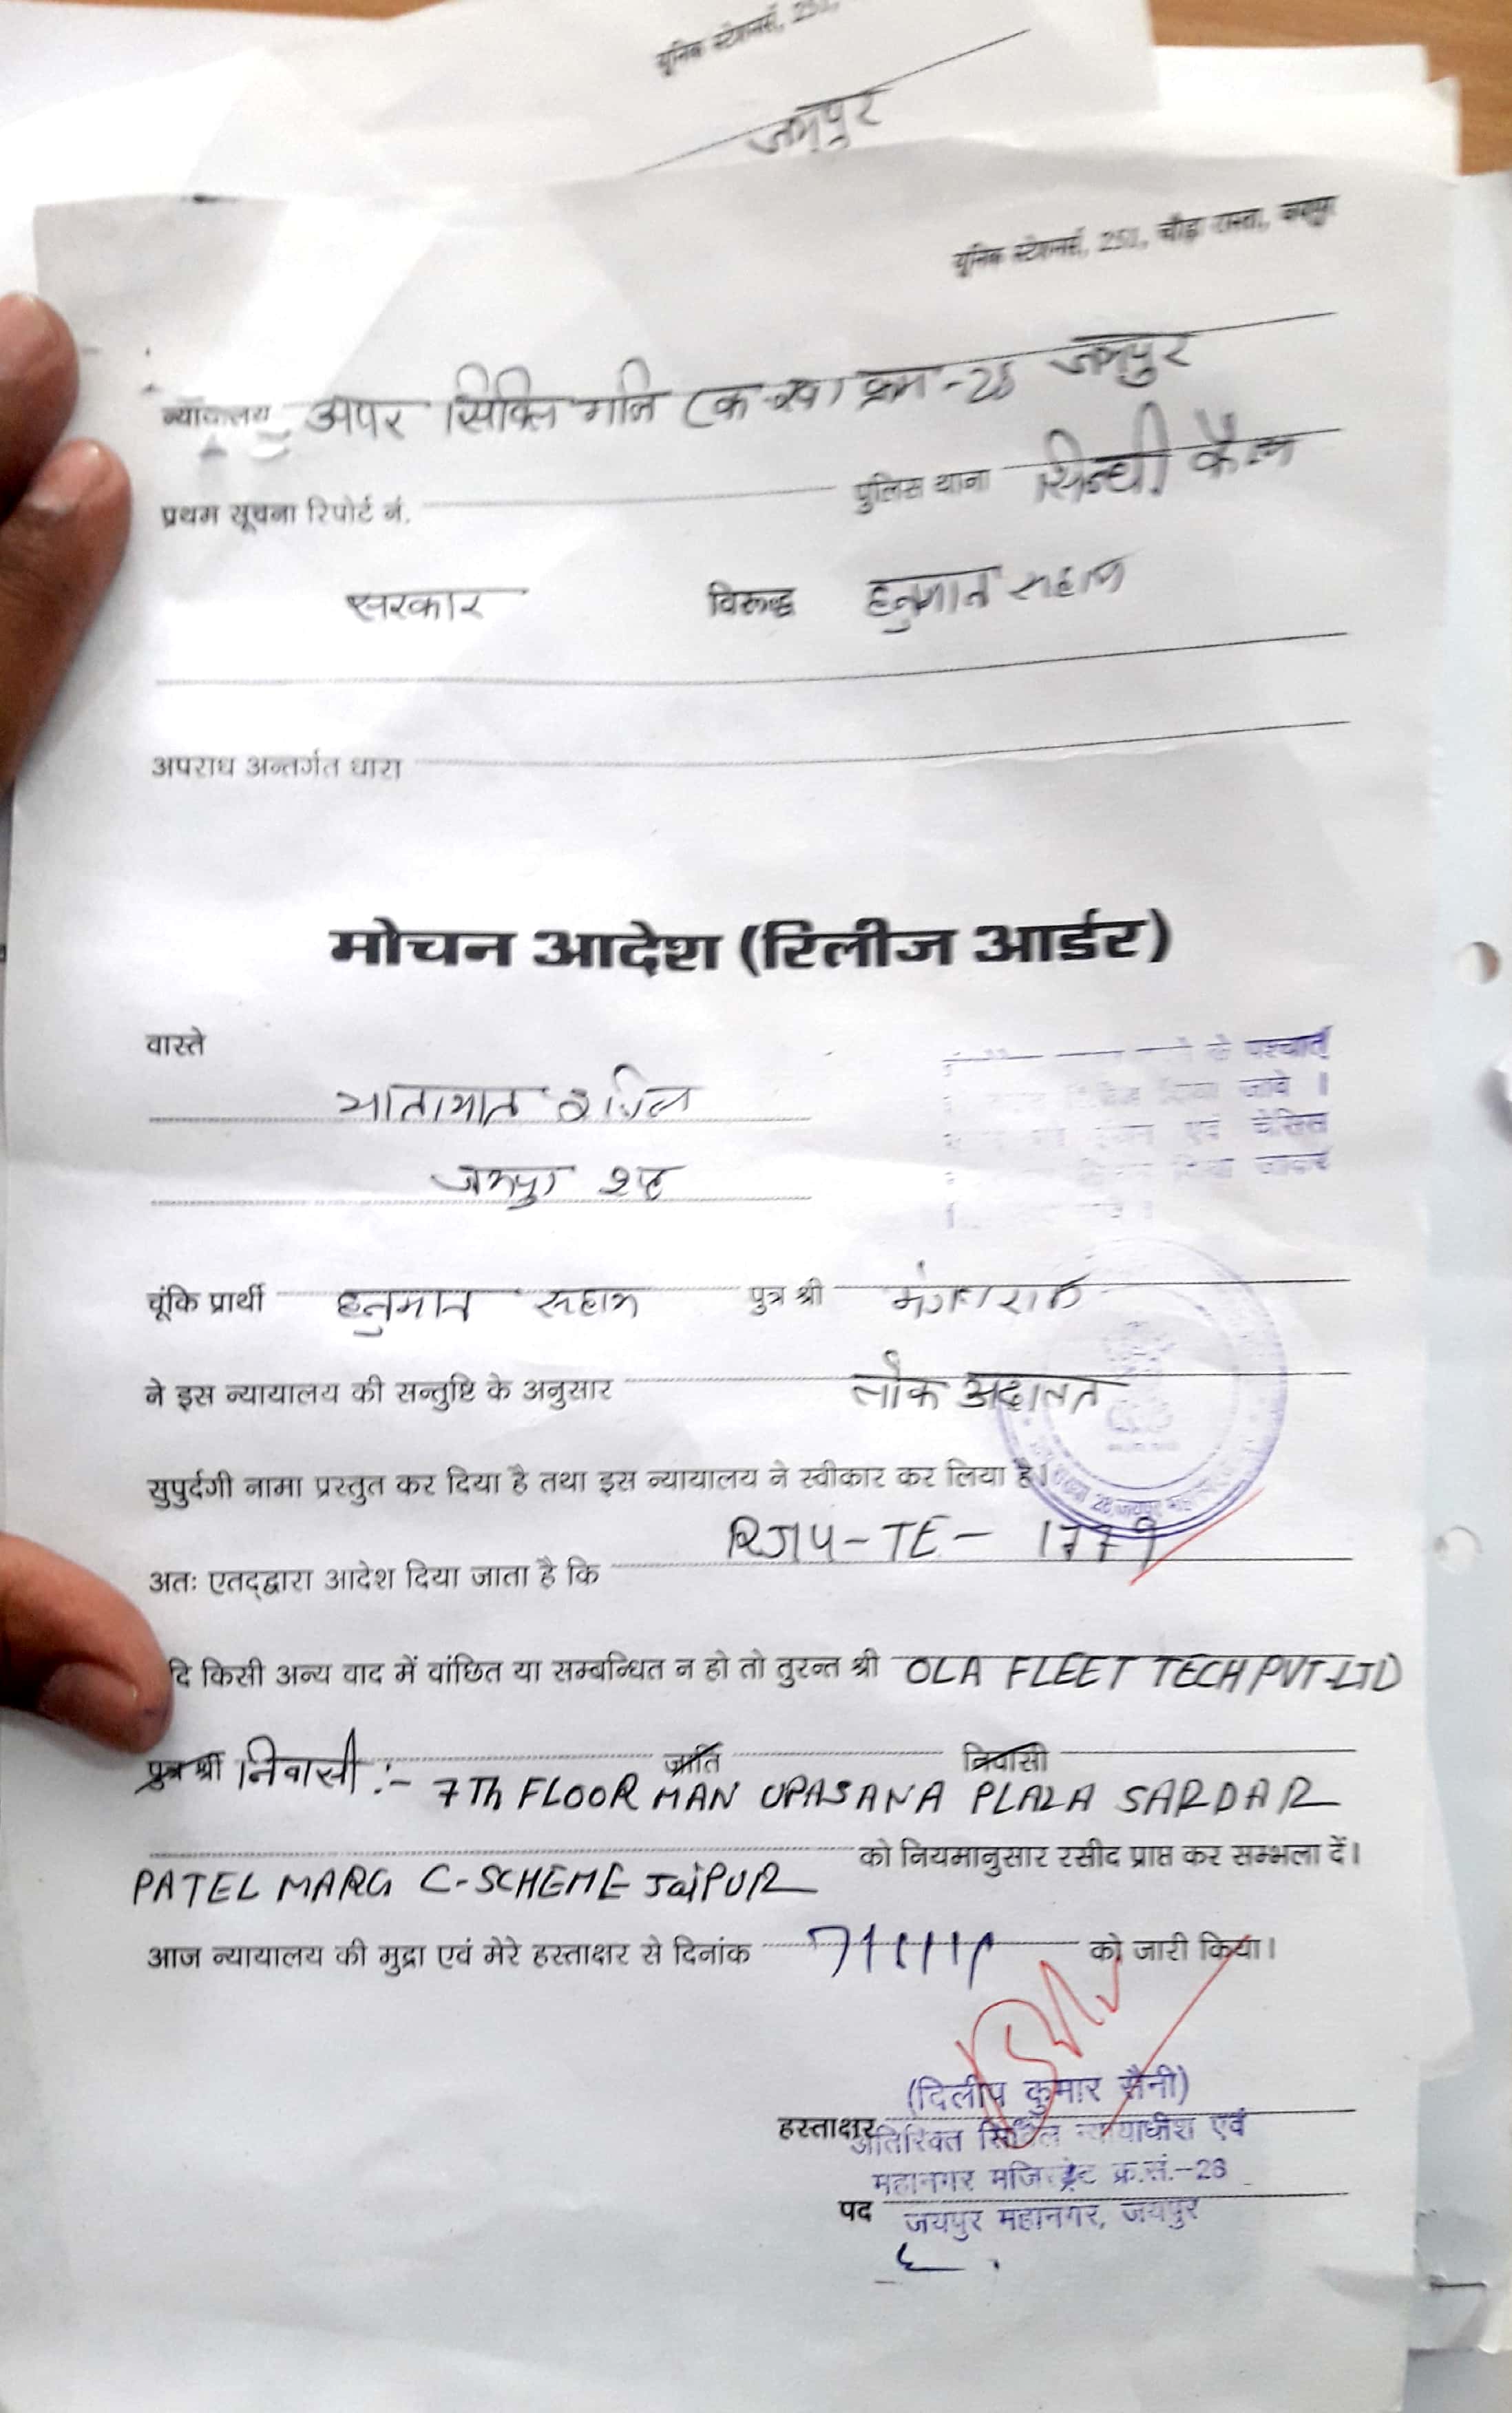 यूनिक स्टेशनर्स, 251,
जयपुर
यूनिक स्टेशनर्स, 251, चौड़ा रास्ता, जयपुर
न्यायालय अपर सिविल क्रम-28 जयपुर
प्रथम सूचना रिपोर्ट नं. पुलिस थाना सिन्धी कैम्प
सरकार विरूद्ध हनुमान सहाय
अपराध अन्तर्गत धारा
मोचन आदेश (रिलीज आर्डर)
वास्ते
से पश्चात्
यातायात
जावे ।
एवं चेसिस
जयपुर
चूंकि प्रार्थी हनुमान सहाय पुत्र श्री
ने इस न्यायालय की सन्तुष्टि के अनुसार लोक अदालत
सुपुर्दगी नामा प्रस्तुत कर दिया है तथा इस न्यायालय ने स्वीकार कर लिया है।
28, जयपुर
RJ14-TE- 1779
अतः एतद्द्वारा आदेश दिया जाता है कि
दि किसी अन्य वाद में वांछित या सम्बन्धित न हो तो तुरन्त श्री OLA FLEET TECH PVT-LTD
पुत्र श्री निवासी :- जाति निवासी
7Th FLOOR MAN UPASANA PLAZA SARDAR
को नियमानुसार रसीद प्राप्त कर सम्भला दें।
PATEL MARG C-SCHEME JaiPUR
आज न्यायालय की मुद्रा एवं मेरे हस्ताक्षर से दिनांक को जारी किया।
(दिलीप कुमार सैनी)
हस्ताक्षर
अतिरिक्त सिविल न्यायाधीश एवं
महानगर मजिस्ट्रेट क्र.सं.-28
पद जयपुर महानगर, जयपुर